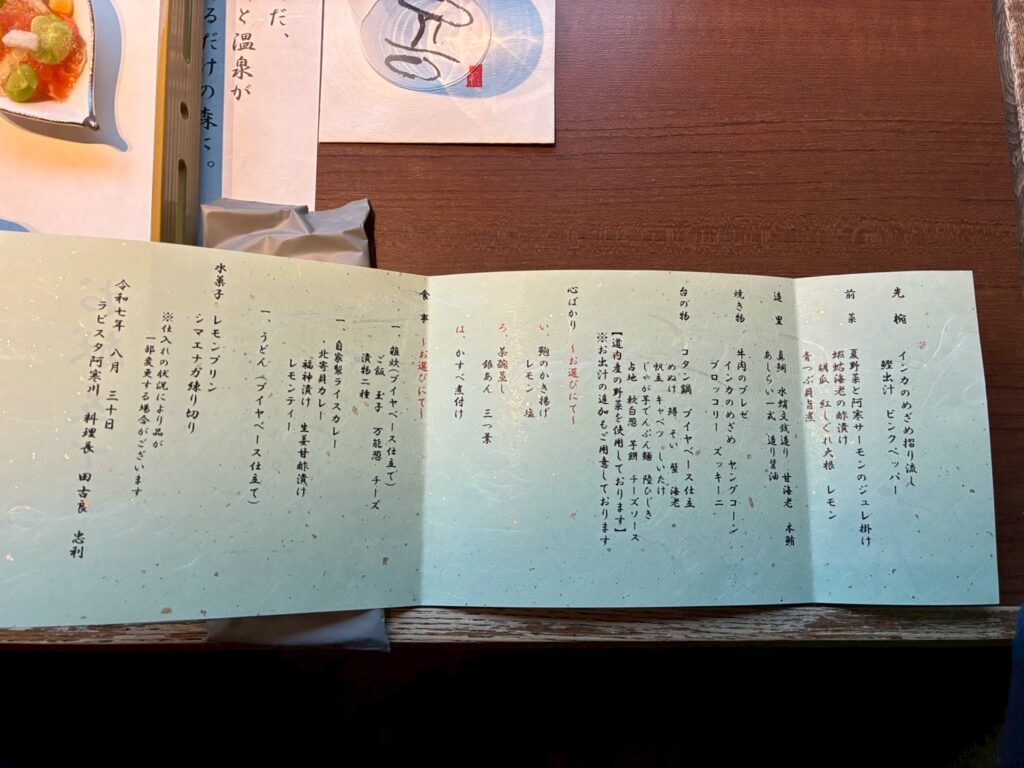 先椀
インカのめざめ摺り流し
鰹出汁 ピンクペッパー
前菜
夏野菜と阿寒サーモンのジュレ掛け
蝦蛄海老の酢漬け
胡瓜 紅しぐれ大根 レモン
青つぶ貝旨煮
造里
真鯛 水蛸叉餞造り 甘海老 本鮪
あしらい一式 造り醤油
焼き物
牛肉のブレゼ
インカのめざめ ヤングコーン
ブロッコリー ズッキーニ
台の物
コタン鍋 ブイヤベース仕立
めぬけ 鱒 そい 蟹 海老
帆立 キャベツ しいたけ
じゃが芋でんぷん麺 陸ひじき
占地 軟白葱 芋餅 チーズソース
【道内産の野菜を使用しております】
※お出汁の追加もご用意しております。
心ばかり ~お選びにて~
い、鮑のかき揚げ
レモン 塩
ろ、茶碗蒸し
銀あん 三つ葉
は、かすべ煮付け
食事 ~お選びにて~
一、雑炊(ブイヤベース仕立て)
ご飯 玉子 万能葱 チーズ
漬物二種
一、自家製ライスカレー
北寄貝カレー
福神漬け 生姜甘酢漬け
レモンティー
一、うどん(ブイヤベース仕立て)
水菓子
レモンプリン
シマエナガ練り切り
※仕入れの状況により品が
一部変更する場合がございます
令和七年 八月 三十日
ラビスタ阿寒川 料理長 田古良 忠利
だ、
と温泉が
るだけの森で。